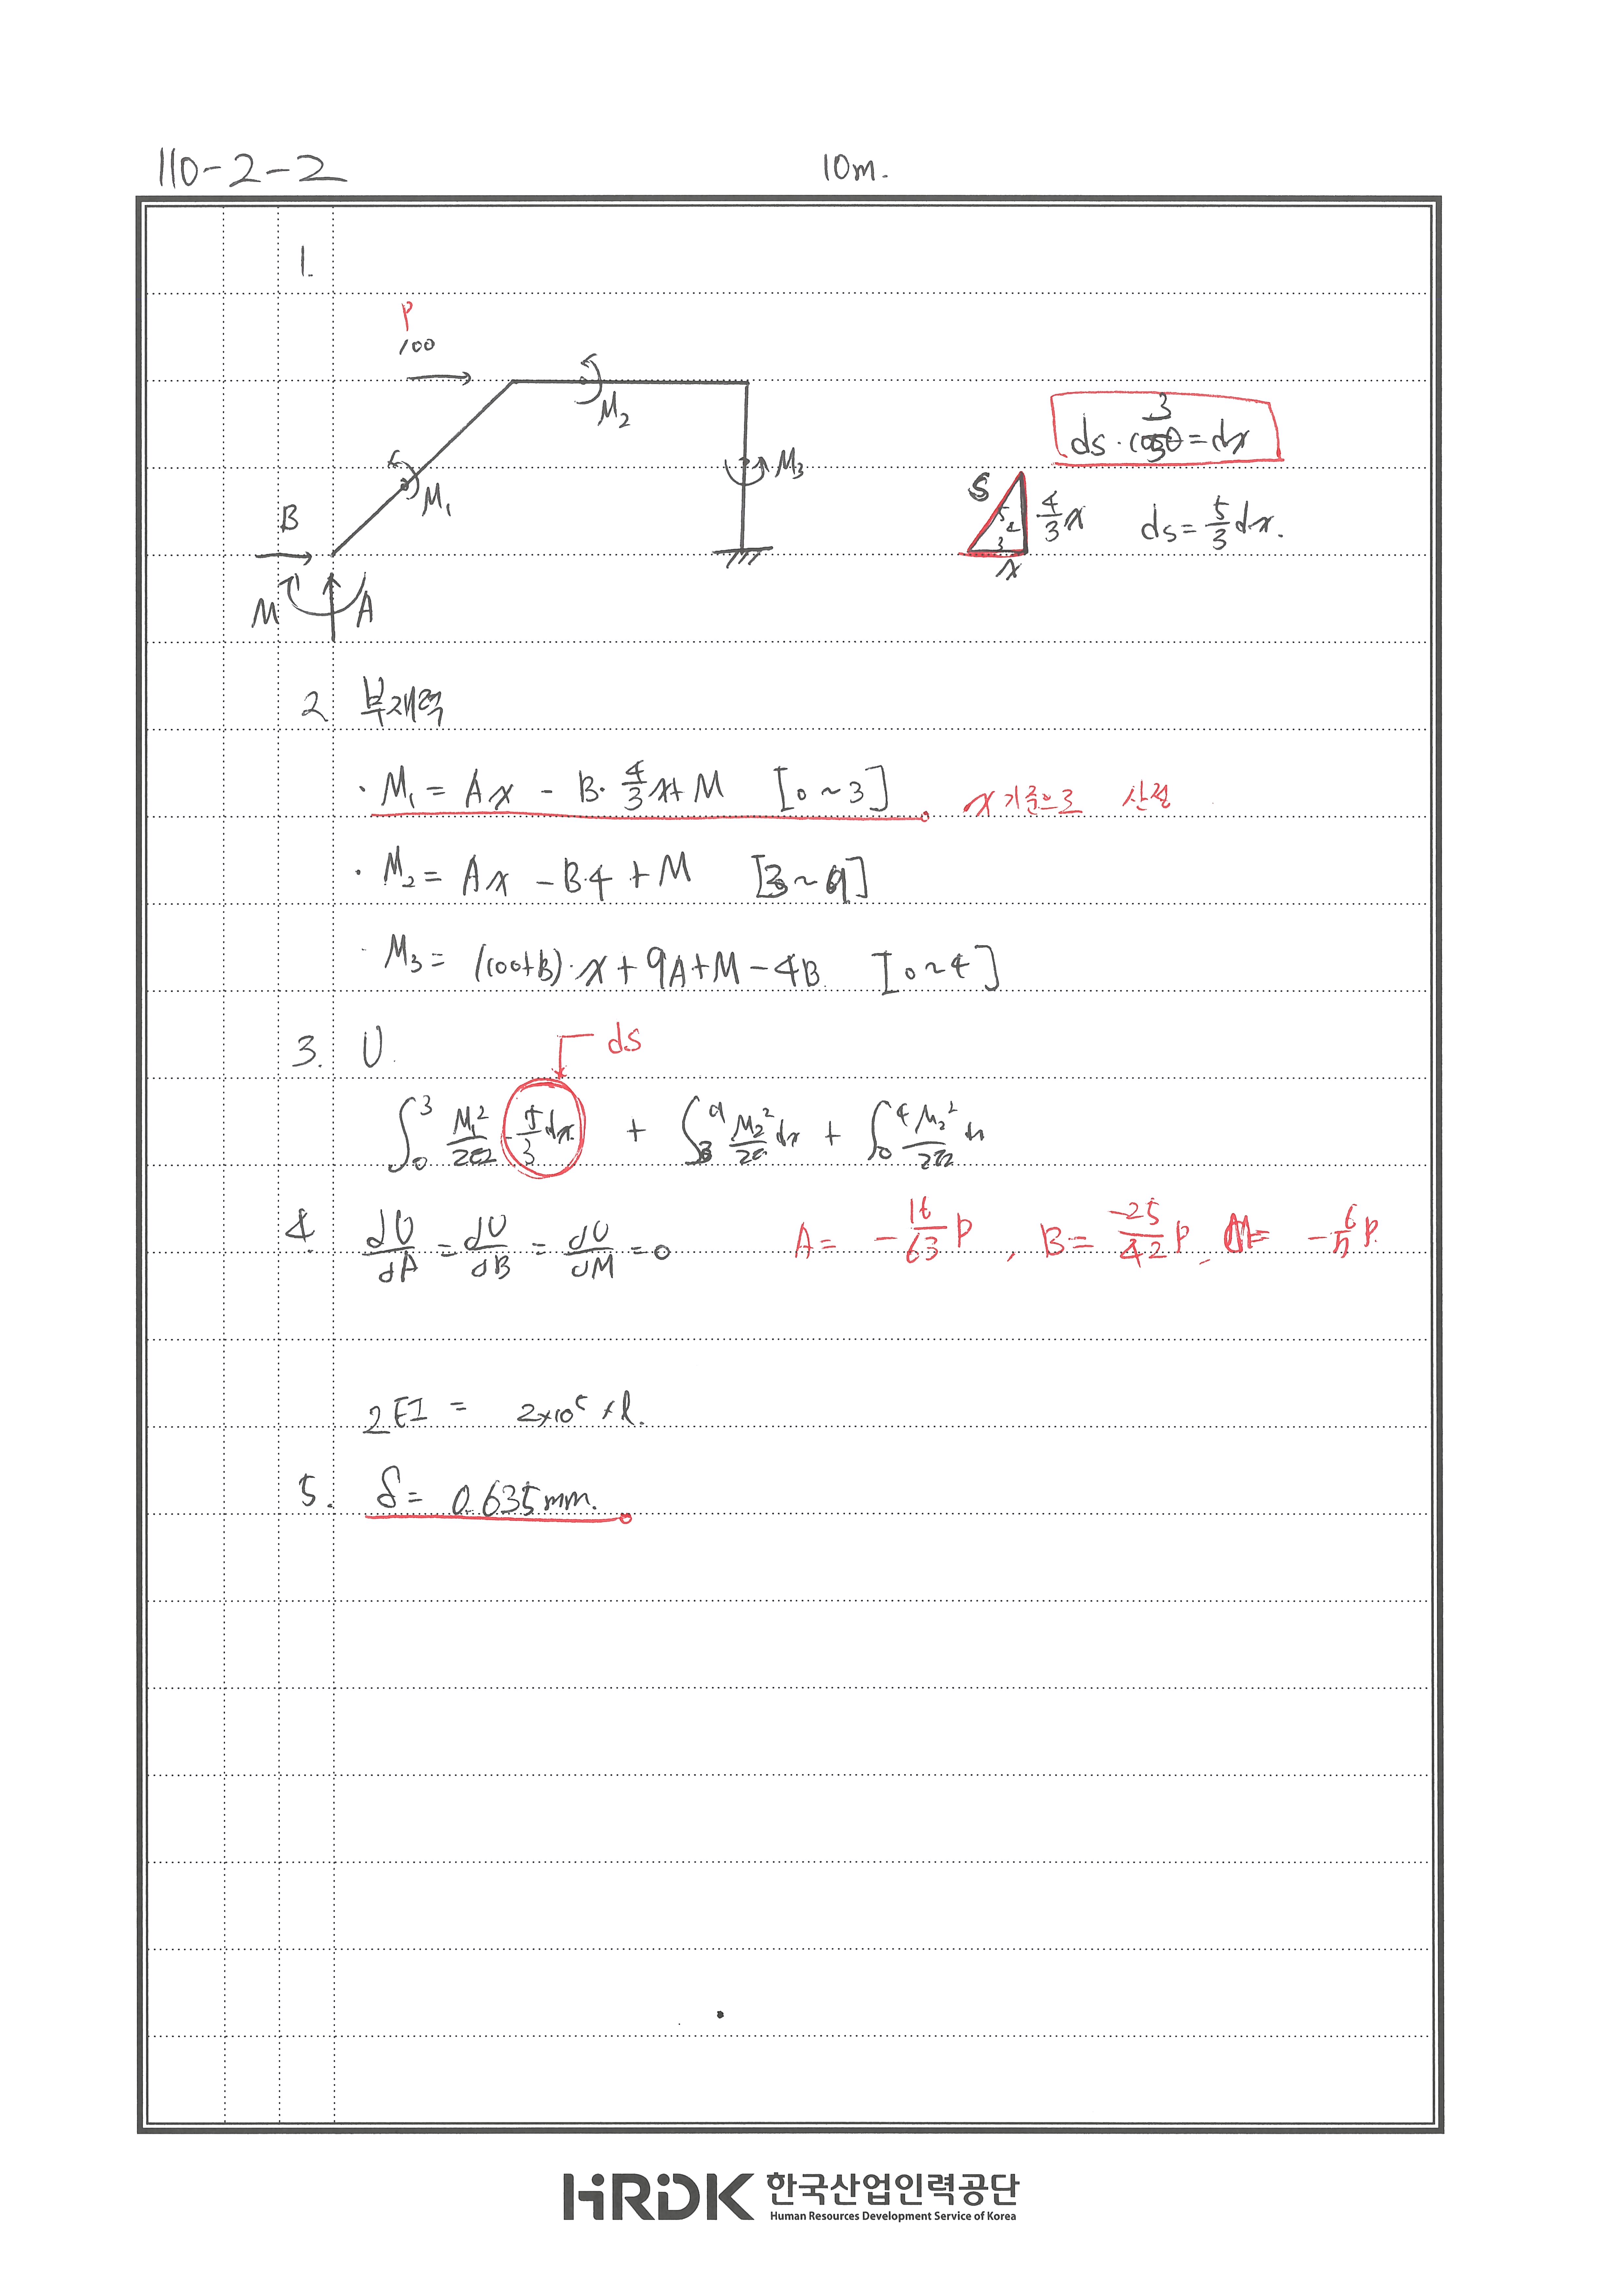 110-2-2 10m.
1.
P
100
M₂
ds·cosθ=dx
3
5
M₃
M₁
S
5
4
3
4/3 x
x
ds=5/3 dx.
B
M
A
2 부재력
· M₁ = Ax - B·4/3 x+ M [0~3] x 기준으로 산정
· M₂ = Ax - B·4 + M [3~9]
· M₃ = (100+B)·x + 9A+M-4B [0~4]
3. U.
ds
∫₀³ M₁²/2EI · 5/3 dx + ∫₃⁹ M₂²/2EI dx + ∫₀⁴ M₂²/2EI dx
4. dU/dA = dU/dB = dU/dM = 0 A= -16/63 P , B= -25/42 P , M= -6/7 P.
2EI = 2×10⁵ ×l.
5. δ = 0.635mm.
HRDK 한국산업인력공단
Human Resources Development Service of Korea